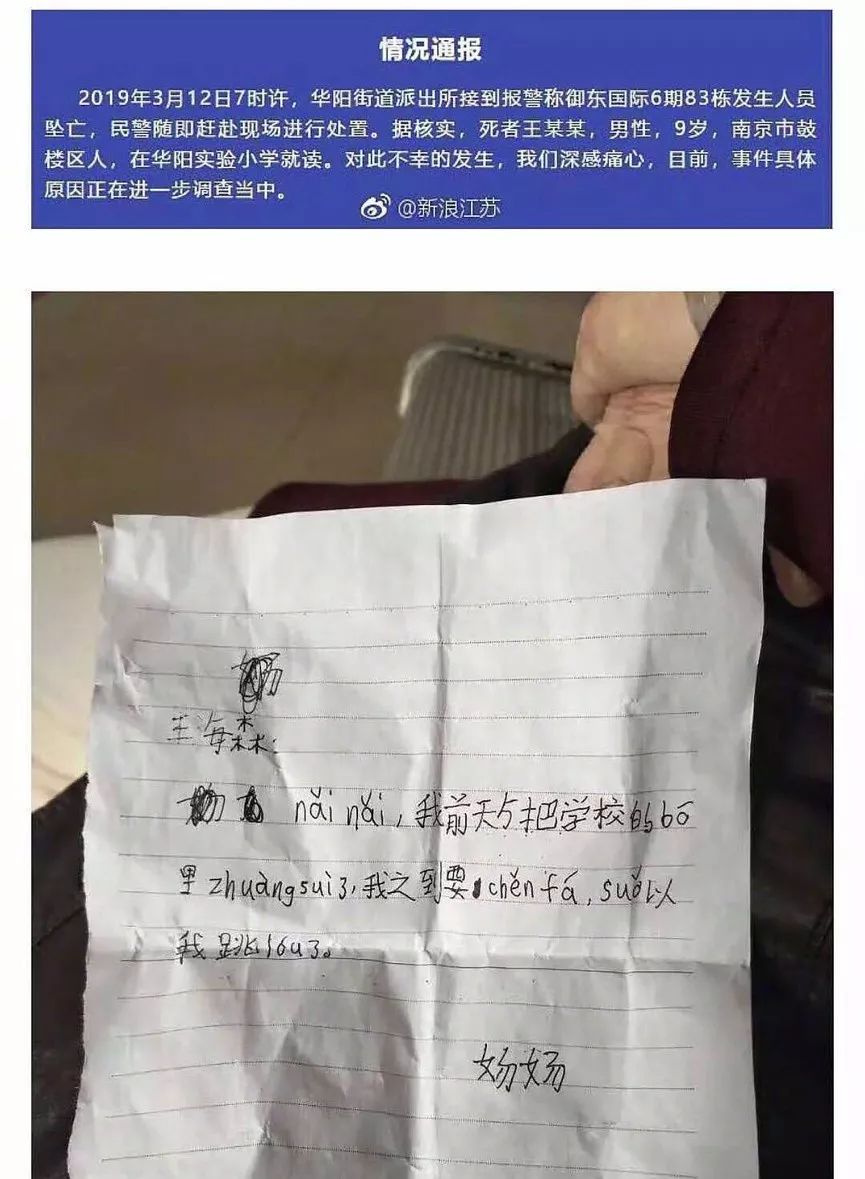 情况通报
2019年3月12日7时许，华阳街道派出所接到报警称御东国际6期83栋发生人员
坠亡，民警随即赶赴现场进行处置。据核实，死者王某某，男性，9岁，南京市鼓
楼区人，在华阳实验小学就读。对此不幸的发生，我们深感痛心，目前，事件具体
原因正在进一步调查当中。
@新浪江苏
王海森：
nǎi nǎi，我前天与把学校的bō
里zhuàngsuì了，我之到要chěnfá，suǒ以
我跳lóu了。
妫妫